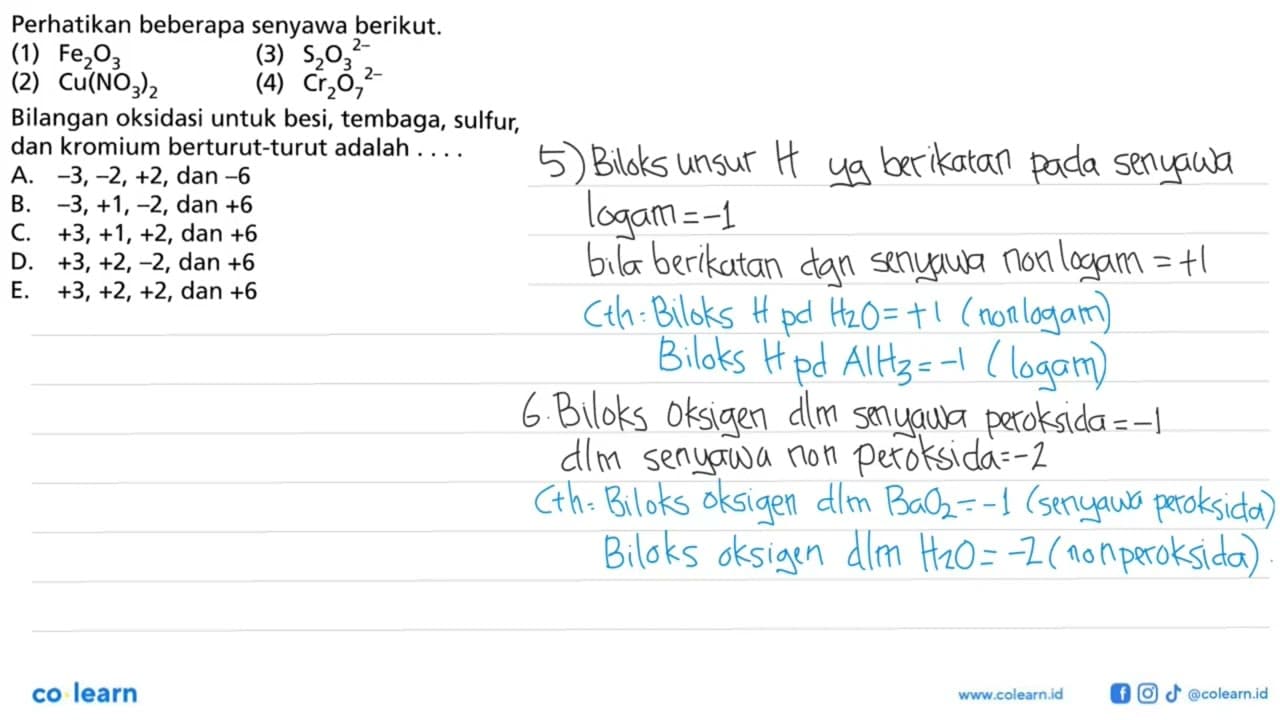 Perhatikan beberapa senyawa berikut.
(1) Fe₂O₃ (3) S₂O₃²⁻
(2) Cu(NO₃)₂ (4) Cr₂O₇²⁻
Bilangan oksidasi untuk besi, tembaga, sulfur,
dan kromium berturut-turut adalah . . . .
A. –3, –2, +2, dan –6
B. –3, +1, –2, dan +6
C. +3, +1, +2, dan +6
D. +3, +2, –2, dan +6
E. +3, +2, +2, dan +6
5) Biloks unsur H yg berikatan pada senyawa
logam = -1
bila berikatan dgn senyawa nonlogam = +1
Cth: Biloks H pd H₂O = +1 (nonlogam)
Biloks H pd AlH₃ = -1 (logam)
6. Biloks Oksigen dlm senyawa peroksida = -1
dlm senyawa non peroksida = -2
Cth: Biloks oksigen dlm BaO₂ = -1 (senyawa peroksida)
Biloks oksigen dlm H₂O = -2 (nonperoksida).
co learn
www.colearn.id @colearn.id